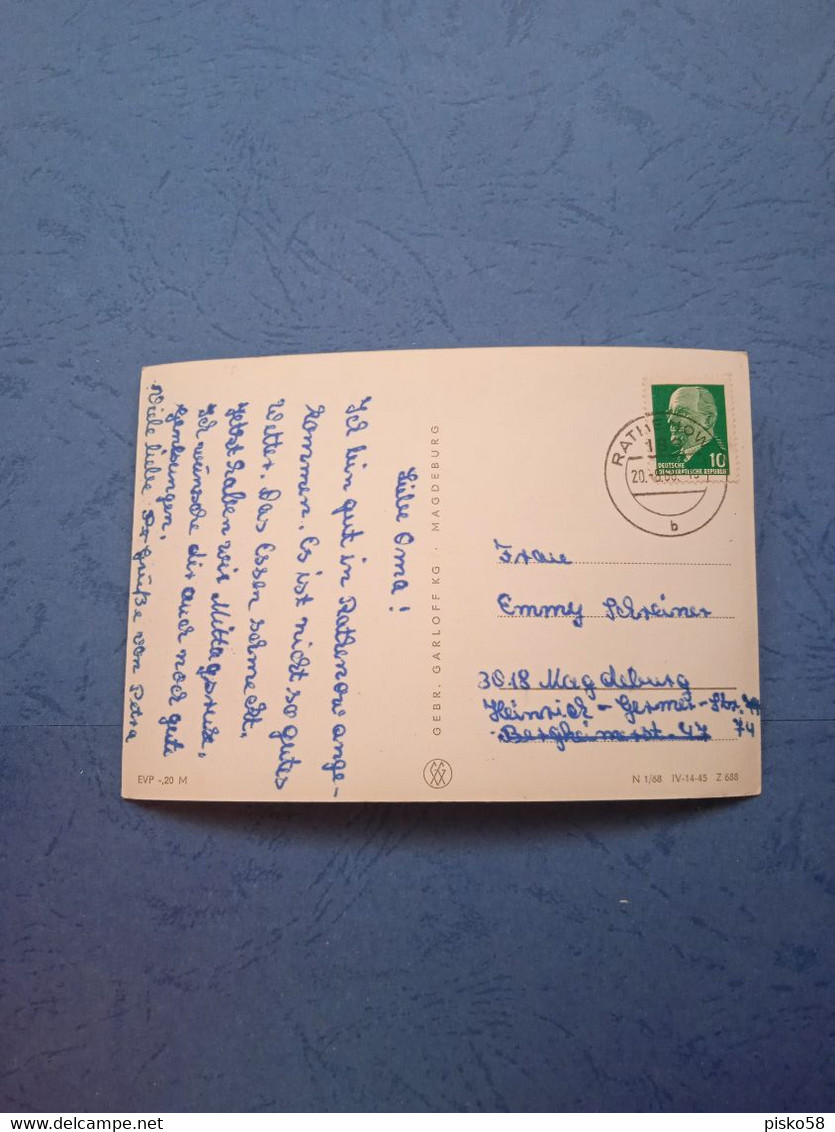 Liebe Oma!
Ich bin gut in Rathenow ange-
kommen. Es ist nicht so gutes
Wetter. Das Essen schmeckt.
Jetzt haben wir Mittagsruhe.
Ich wünsche dir auch noch gute
Viele liebe Grüße von Petra
GEBR. GARLOFF KG · MAGDEBURG
EVP -,20 M
RATHENOW
b
DEUTSCHE
DEMOKRATISCHE REPUBLIK
10
Fraue
Emmy Schreiner
3018 Magdeburg
Heinrich-Germer-Str.
74
Bergheimerst. 47
N 1/68 IV-14-45 Z 688
delcampe.net
pisko58